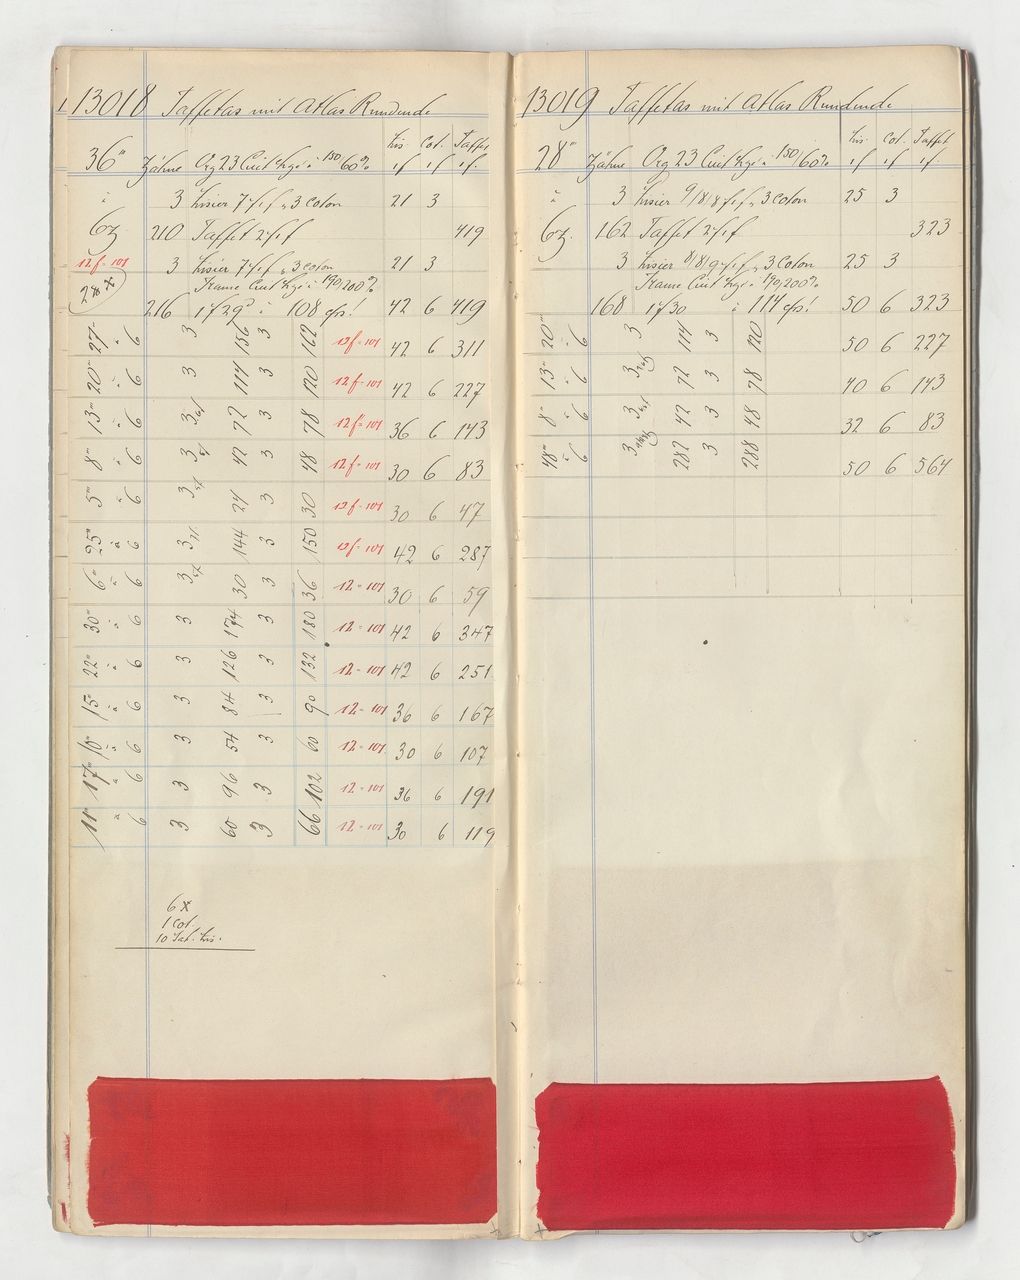 13018 Taffetas mit Atlas Rundende
lis. Cot. Taffet
36''' Zähne Org 23 Cuit à 150/60%
1f 1f 1f.
à 3 Lisier 7/1f 3 Coton 21 3
6z 210 Taffet 2/1f 419
12f=101 3 Lisier 7/1f 3 Coton 21 3
Trame Cuit à 190/200%
2x x
216 1f 29 à 108 cps! 42 6 419
27''' à 6 3 156 3 162 12f=101 42 6 311
20''' à 6 3 114 3 120 12f=101 42 6 227
13''' à 6 3 72 3 78 12f=101 36 6 143
8''' à 6 3 42 3 48 12f=101 30 6 83
5''' à 6 3 24 3 30 12f=101 30 6 47
25''' à 6 3 144 3 150 12f=101 42 6 287
6''' à 6 3 30 3 36 12=101 30 6 59
30''' à 6 3 174 3 180 12=101 42 6 347
22''' à 6 3 126 3 132 12=101 42 6 251
15''' à 6 3 84 3 90 12=101 36 6 167
10''' à 6 3 54 3 60 12=101 30 6 107
17''' à 6 3 96 3 102 12=101 36 6 191
11''' à 6 3 60 3 66 12=101 30 6 119
6 x
1 Cot.
10 Taf. Lis.
13019 Taffetas mit Atlas Rundende
lis. Cot. Taffet
28''' Zähne Org 23 Cuit à 150/60%
1f 1f 1f.
à 3 Lisier 9/8/8/1f 3 Coton 25 3
6z. 162 Taffet 2/1f 323
3 Lisier 8/8/9/1f 3 Coton 25 3
Trame Cuit à 190/200%
168 1f 30 à 114 cps! 50 6 323
20''' à 6 3 114 3 120 50 6 227
13''' à 6 3 72 3 78 40 6 143
8''' à 6 3 42 3 48 32 6 83
48''' à 6 3 282 3 288 50 6 564